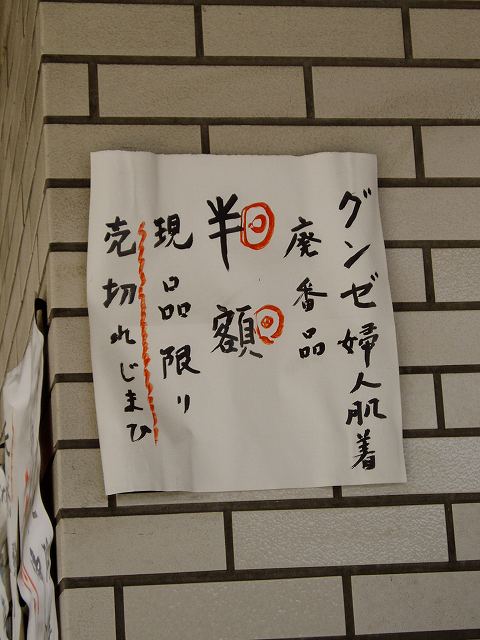 グンゼ婦人肌着
廃番品
半額
現品限り
売切れじまひ